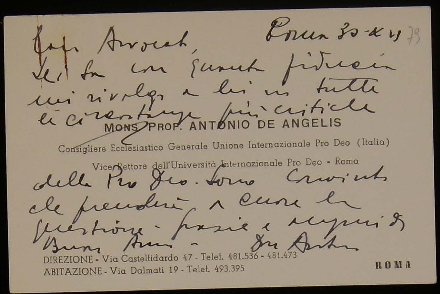 Caro Avvocato, Roma 30-X-
79
Lei sa con quanta fiducia
mi rivolgo a lei in tutte
le circostanze più critiche
MONS. PROF. ANTONIO DE ANGELIS
Consigliere Ecclesiastico Generale Unione Internazionale Pro Deo (Italia)
Vice Rettore dell'Università Internazionale Pro Deo - Roma
della Pro Deo. Sono convinto
che prenderà a cuore la
questione - grazie e auguri di
Buon
DIREZIONE - Via Castelfidardo 47 - Telef. 481.536 - 481.473
ABITAZIONE - Via Dalmati 19 - Telef. 493.395
ROMA